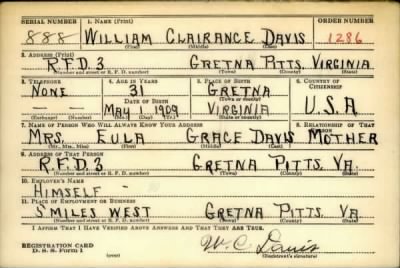 SERIAL NUMBER 1. NAME (Print) ORDER NUMBER
888 WILLIAM CLAIRANCE DAVIS 1286
(First) (Middle) (Last)
2. ADDRESS (Print)
R.F.D. 3 GRETNA PITTS. VIRGINIA
(Number and street or R. F. D. number) (Town) (County) (State)
3. TELEPHONE 4. AGE IN YEARS 5. PLACE OF BIRTH 6. COUNTRY OF CITIZENSHIP
NONE 31 GRETNA
DATE OF BIRTH (Town or county)
- - MAY 1 1909 VIRGINIA U.S.A
(Exchange) (Number) (Mo.) (Day) (Yr.) (State or country)
7. NAME OF PERSON WHO WILL ALWAYS KNOW YOUR ADDRESS 8. RELATIONSHIP OF THAT PERSON
MRS. EULA GRACE DAVIS MOTHER
(Mr., Mrs., Miss) (First) (Middle) (Last)
9. ADDRESS OF THAT PERSON
R.F.D. 3 GRETNA PITTS. VA.
(Number and street or R. F. D. number) (Town) (County) (State)
10. EMPLOYER'S NAME
HIMSELF -
11. PLACE OF EMPLOYMENT OR BUSINESS
5 MILES WEST GRETNA PITTS. VA
(Number and street or R. F. D. number) (Town) (County) (State)
I AFFIRM THAT I HAVE VERIFIED ABOVE ANSWERS AND THAT THEY ARE TRUE.
W. C. Davis
REGISTRATION CARD
D. S. S. Form 1 (Registrant's signature)